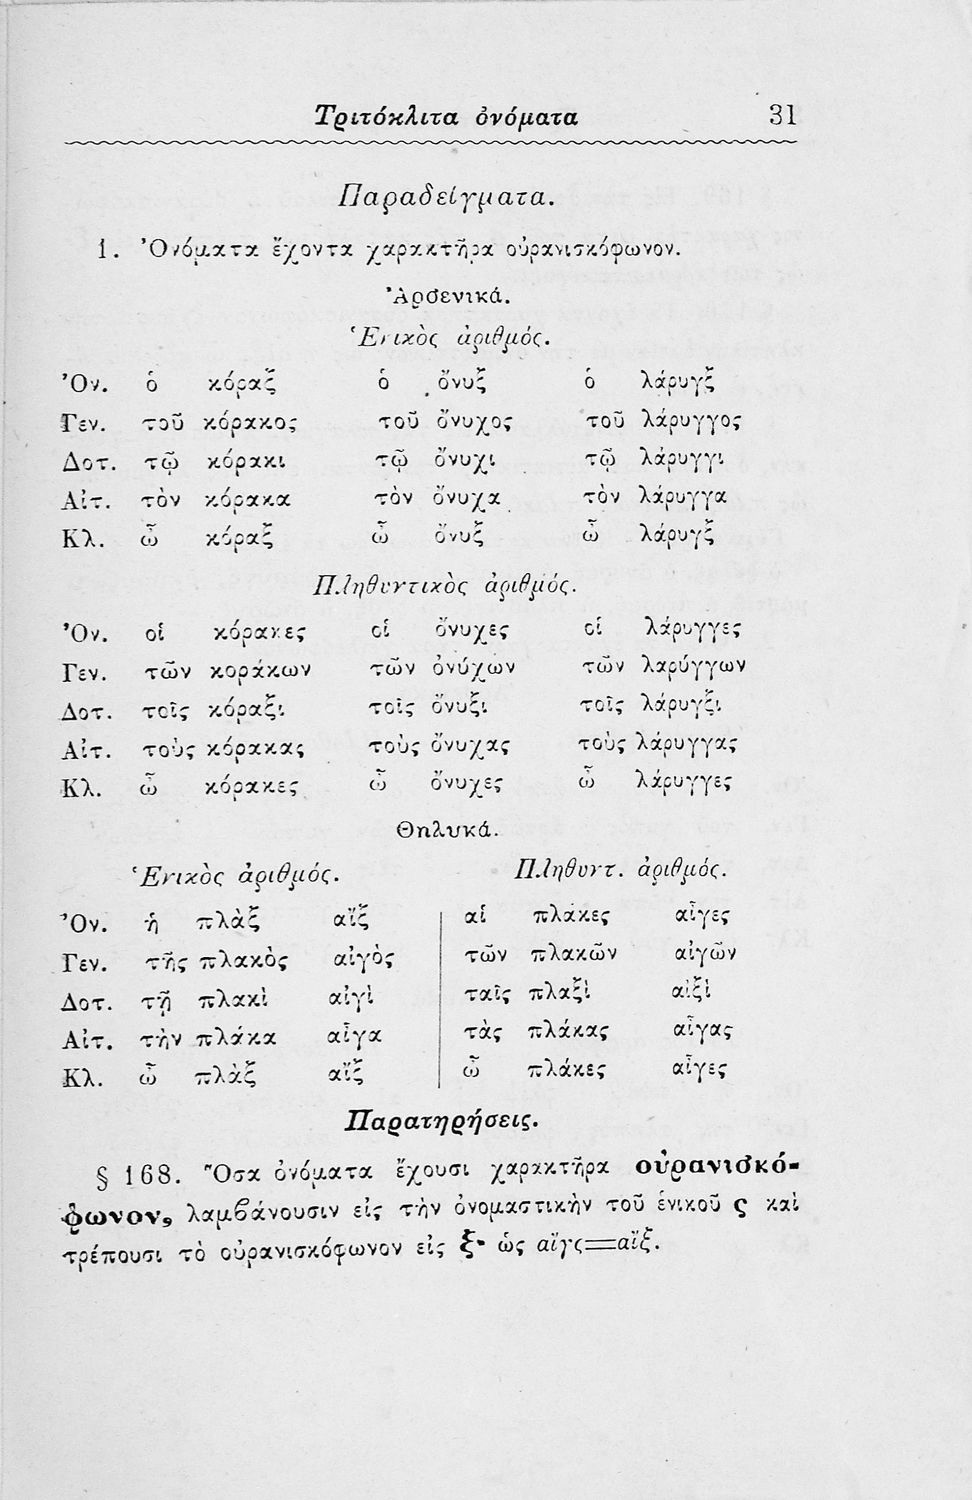 Τριτόκλιτα ὀνόματα 31
Παραδείγματα.
1. Ὀνόματα ἔχοντα χαρακτῆρα οὐρανισκόφωνον.
Ἀρσενικά.
Ἑνικὸς ἀριθμός.
Ὀν. ὁ κόραξ ὁ ὄνυξ ὁ λάρυγξ
Γεν. τοῦ κόρακος τοῦ ὄνυχος τοῦ λάρυγγος
Δοτ. τῷ κόρακι τῷ ὄνυχι τῷ λάρυγγι
Αἰτ. τὸν κόρακα τὸν ὄνυχα τὸν λάρυγγα
Κλ. ὦ κόραξ ὦ ὄνυξ ὦ λάρυγξ
Πληθυντικὸς ἀριθμός.
Ὀν. οἱ κόρακες οἱ ὄνυχες οἱ λάρυγγες
Γεν. τῶν κοράκων τῶν ὀνύχων τῶν λαρύγγων
Δοτ. τοῖς κόραξι τοῖς ὄνυξι τοῖς λάρυγξι
Αἰτ. τοὺς κόρακας τοὺς ὄνυχας τοὺς λάρυγγας
Κλ. ὦ κόρακες ὦ ὄνυχες ὦ λάρυγγες
Θηλυκά.
Ἑνικὸς ἀριθμός. Πληθυντ. ἀριθμός.
Ὀν. ἡ πλὰξ αἴξ αἱ πλάκες αἶγες
Γεν. τῆς πλακὸς αἰγὸς τῶν πλακῶν αἰγῶν
Δοτ. τῇ πλακὶ αἰγὶ ταῖς πλαξὶ αἰξὶ
Αἰτ. τὴν πλάκα αἶγα τὰς πλάκας αἶγας
Κλ. ὦ πλὰξ αἴξ ὦ πλάκες αἶγες
Παρατηρήσεις.
§ 168. Ὅσα ὀνόματα ἔχουσι χαρακτῆρα οὐρανισκό-
φωνον, λαμβάνουσιν εἰς τὴν ὀνομαστικὴν τοῦ ἑνικοῦ ς καὶ
τρέπουσι τὸ οὐρανισκόφωνον εἰς ξ· ὡς αἴγς=αἴξ.